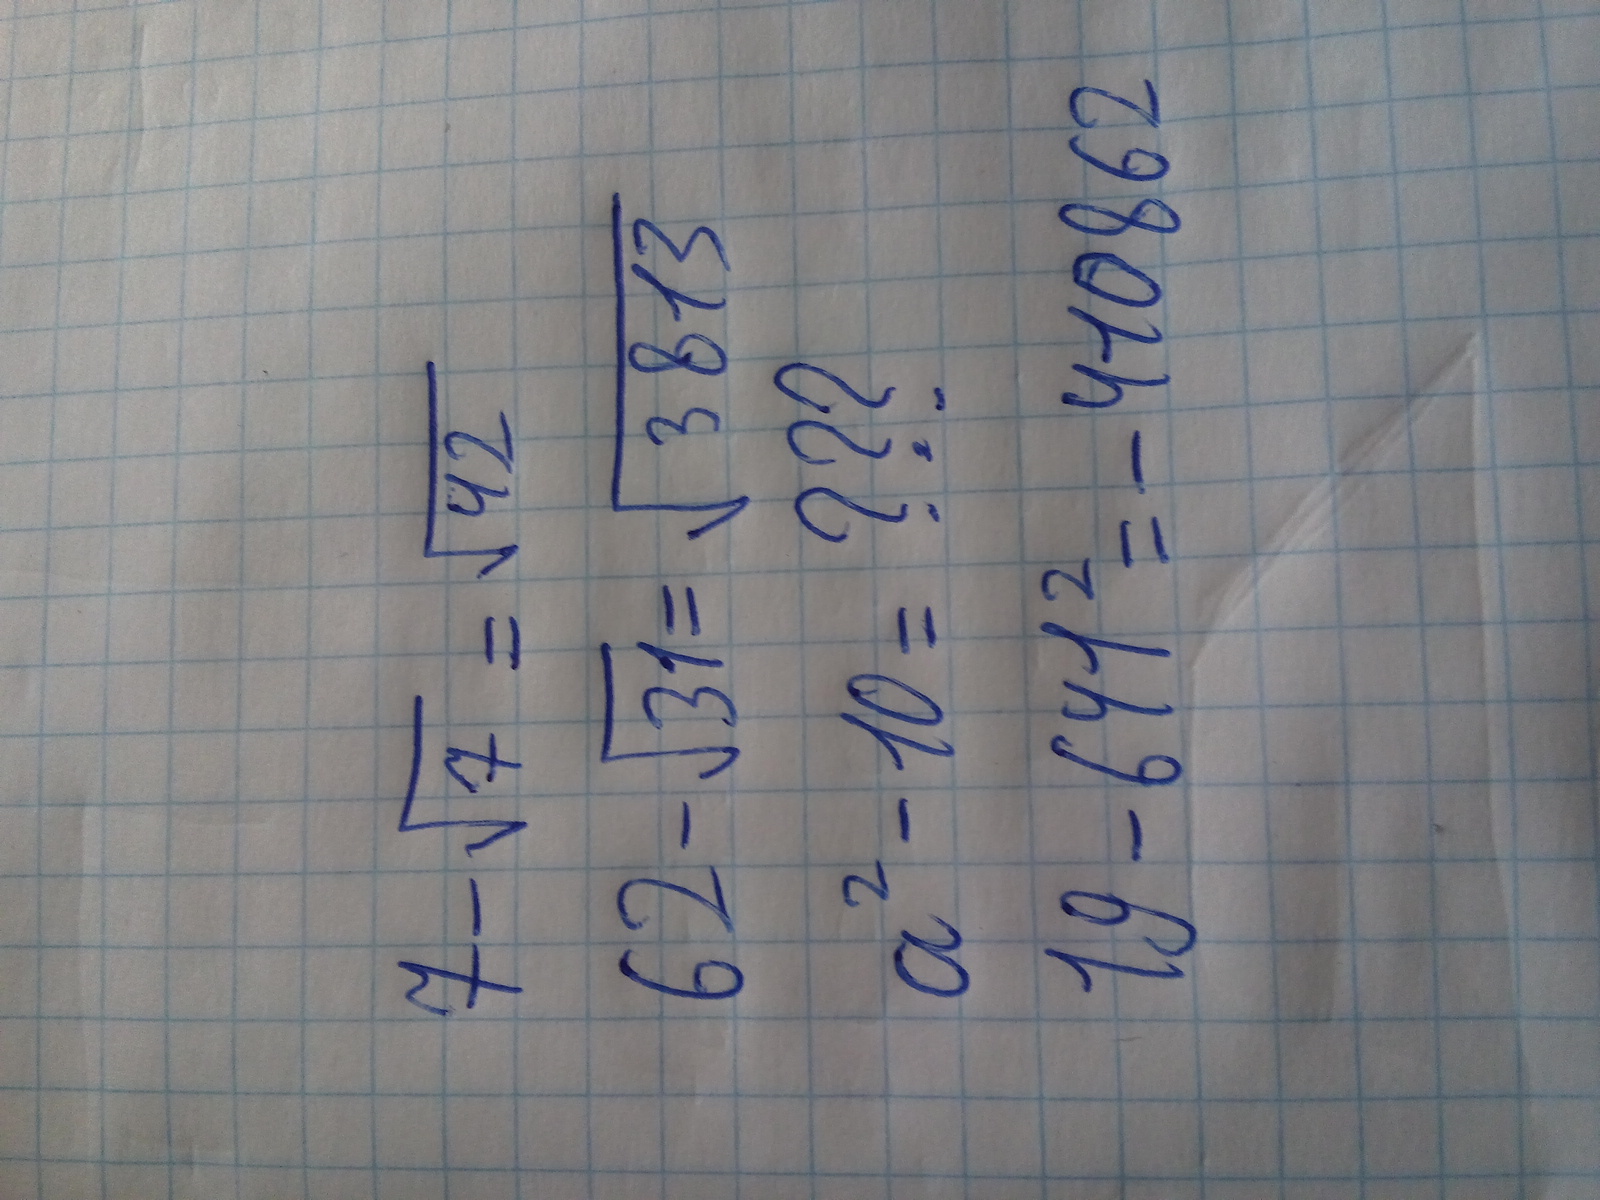 7 - √7 = √42
62 - √31 = √3813
a² - 10 = ???
19 - 641² = - 410862